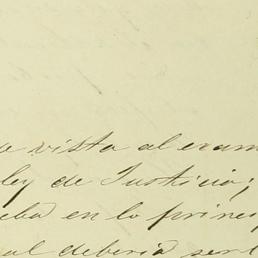 a vista al exam
ley de Justicia;
eba en lo princi
al deberia ser